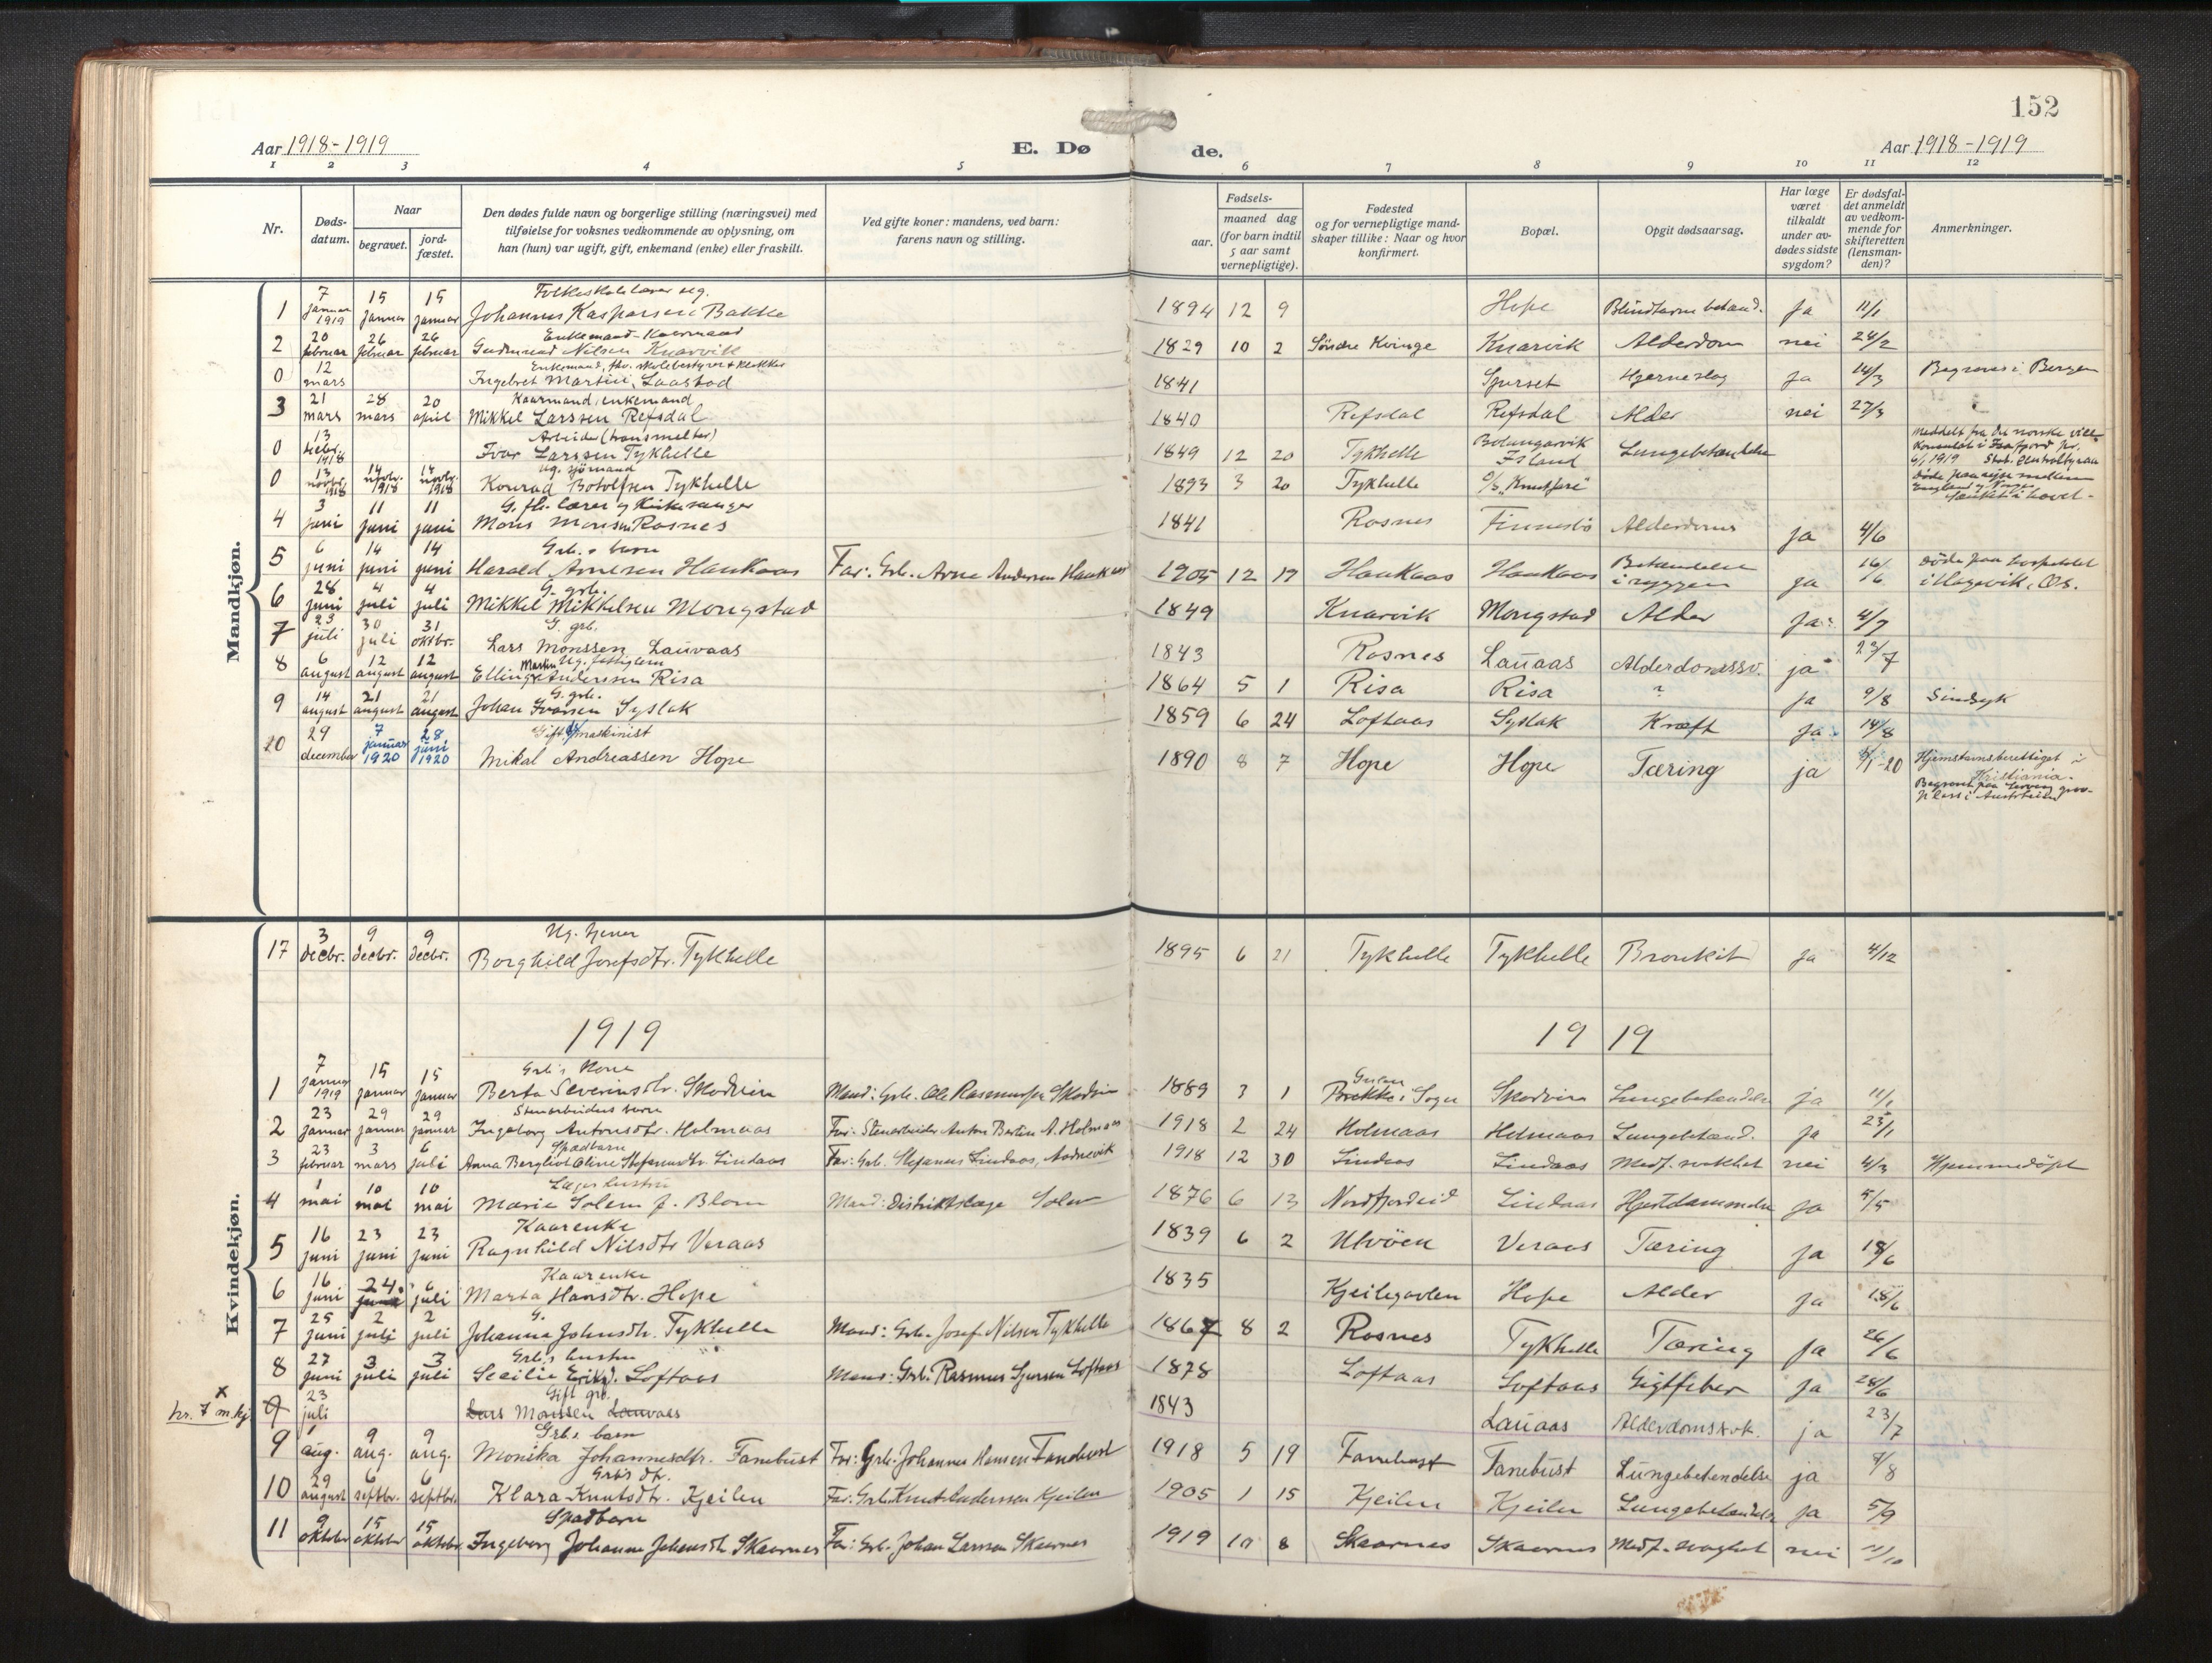 152
Aar 1918-1919
E. Dø de.
Aar 1918-1919
1 2 3 4 5 6 7 8 9 10 11 12
Nr.
Døds-datum.
Naar
begravet.
jord-fæstet.
Den dødes fulde navn og borgerlige stilling (næringsvei) med
tilføielse for voksnes vedkommende av oplysning, om
han (hun) var ugift, gift, enkemand (enke) eller fraskilt.
Ved gifte koner: mandens, ved barn:
farens navn og stilling.
Fødsels-
aar.
maaned dag
(for barn indtil
5 aar samt
vernepligtige).
Fødested
og for vernepligtige mand-
skaper tillike: Naar og hvor
konfirmert.
Bopæl.
Opgit dødsaarsag.
Har læge
været
tilkaldt
under av-
dødes sidste
sygdom?
Er dødsfal-
det anmeldt
av vedkom-
mende for
skifteretten
(lensman-
den)?
Anmerkninger.
Mandkjøn.
Folkeskolelærer ug.
1 7 januar 1919 15 januar 15 januar Johannes Kasparsen Bakke 1894 12 9 Hope Blindtarmbetænd. Ja 11/1
Enkemand - Kaarmand
2 20 februar 26 februar 26 februar Gudmund Nilsen Knarvik 1829 10 2 Söndre Kvinge Knarvik Alderdom nei 24/2
Enkemand, fhv. skolebestyrer + klokker
0 12 mars Ingebret Martin Laastad 1841 Spurset Hjerneslag ja 14/3 Begraves i Bergen
Kaarmand, enkemand
3 21 mars 28 mars 20 april Mikkel Larssen Refsdal 1840 Refsdal Refsdal Alder nei 27/3
Arbeider (transmelter)
0 13 decbr. 1918 Ivar Larssen Tykhelle 1849 12 20 Tykhelle Bolungarvik Island Lungebetændelse Meddelt fra det norske vice-
Konsulat i Isafjord
ug. sjömand
0 13 novbr. 1918 14 novbr. 1918 14 novbr. 1918 Konrad Botolfsen Tykhelle 1893 3 20 Tykhelle Døde paa reise mellem
England og Norge
Sænket i havet -
G. fh. lærer og Kirkesanger
4 3 juni 11 juni 11 juni Mons Monsen Rosnes 1841 Rosnes Finnesbö Alderdoms ja 4/6
Grb.s barn
5 6 juni 14 juni 14 juni Harald Arnesen Haukaas Far: Grb. Arne Andersen Haukaas 1905 12 17 Haukaas Haukaas Betændelse i ryggen ja 16/6 Döde paa hospitalet
i Hagevik, Os.
G. grb.
6 28 juni 4 juli 4 juli Mikkel Mikkelsen Mongstad 1849 Knarvik Mongstad Alder Ja 4/7
G. grb.
7 23 juli 30 juli 31 oktbr. Lars Monssen Lauvaas 1843 Rosnes Lauaas Alderdomssv. ja 23/7
Martin Ug. fattiglem
8 6 august 12 august 12 august Elling Anderssen Risa 1864 5 1 Risa Risa ? ja 9/8 Sindsyk
G. grb.
9 14 august 21 august 21 august Johan Ivarsen Syslak 1859 6 24 Loftaas Syslak Kræft ja 14/8
Gift maskinist
10 29 december 7 januar 1920 28 juni 1920 Mikal Andreassen Hope 1890 8 7 Hope Hope Tæring ja 5/1-20 Hjemstavnsberettiget i
Kristiania.
Kvindekjøn.
Ug. tjener
17 3 decbr. 9 decbr. 9 decbr. Borghild Josefsdtr. Tykhelle 1895 6 21 Tykhelle Tykhelle Bronkit Ja 4/12
1919 19 19
Grb.s Kone
1 7 januar 1919 15 januar 15 januar Berta Severinsdtr. Skodvin Mand: Grb. Ole Rasmussen Skodvin 1889 3 1 Gulen Brekke i Sogn Skodvin Lungebetændelse ja 11/1
Stenarbeiders barn
2 23 januar 29 januar 29 januar Ingeborg Antonsdtr. Holmaas Far: Stenarbeider Anton Bertin A. Holmaas 1918 2 24 Holmaas Holmaas Lungebetænd. ja 25/1
Spædbarn
3 23 februar 3 mars 6 juli Anna Bergliot Oline Stefanusdtr. Lindaas Far: Grb. Stefanus Lindaas, Andvik 1918 12 30 Lindaas Lindaas Medf. svakhet nei 4/3 Hjemmedöpt
Læges hustru
4 1 mai 10 mai 10 mai Marie Solem f. Blom Mand: Distriktslæge Solem 1876 6 13 Nordfjordeid Lindaas Hjertelammelse Ja 5/5
Kaarenke
5 16 juni 23 juni 23 juni Ragnhild Nilsdtr Veraas 1839 6 2 Ulvöen Veraas Tæring Ja 18/6
Kaarenke
6 16 juni 24. juni 6 juli Marta Hansdtr. Hope 1835 Kjeilegavlen Hope Alder ja 18/6
G.
7 25 juni 2 juli 2 juli Johanna Johnsdtr. Tykhelle Mand: Grb. Josef Nilsen Tykhelle 1867 8 2 Rosnes Tykhelle Tæring ja 26/6
Grb.s hustru
8 27 juni 3 juli 3 juli Secilie Eriksd. Loftaas Mand: Grb. Rasmus Sjursen Loftaas 1878 Loftaas Loftaas Gigtfeber Ja 28/6
Gift grb.
x nr. 7 m.kj. 9 23 juli Lars Monssen Lauvaas 1843 Lauaas Alderdomssvk. ja 23/7
Grb.s barn
9 1 aug. 9 aug. 9 aug. Monika Johannesdtr. Fanebust Far: Grb. Johannes Hansen Fanebust 1918 5 19 Fanebust Fanebust Lungebetendelse ja 8/8
Grb.s dtr.
10 29 august 6 septbr. 6 septbr. Klara Knutsdtr. Kjeilen Far: Grb. Knut Anderssen Kjeilen 1905 1 15 Kjeilen Kjeilen Lungebetændelse Ja 5/9
Spædbarn
11 9 oktober 15 oktober 15 oktober Ingeborg Johanne Johansdtr. Skaarnes Far: Grb. Johan Larssen Skaarnes 1919 10 8 Skaarnes Skaarnes Medf. svaghet nei 11/10